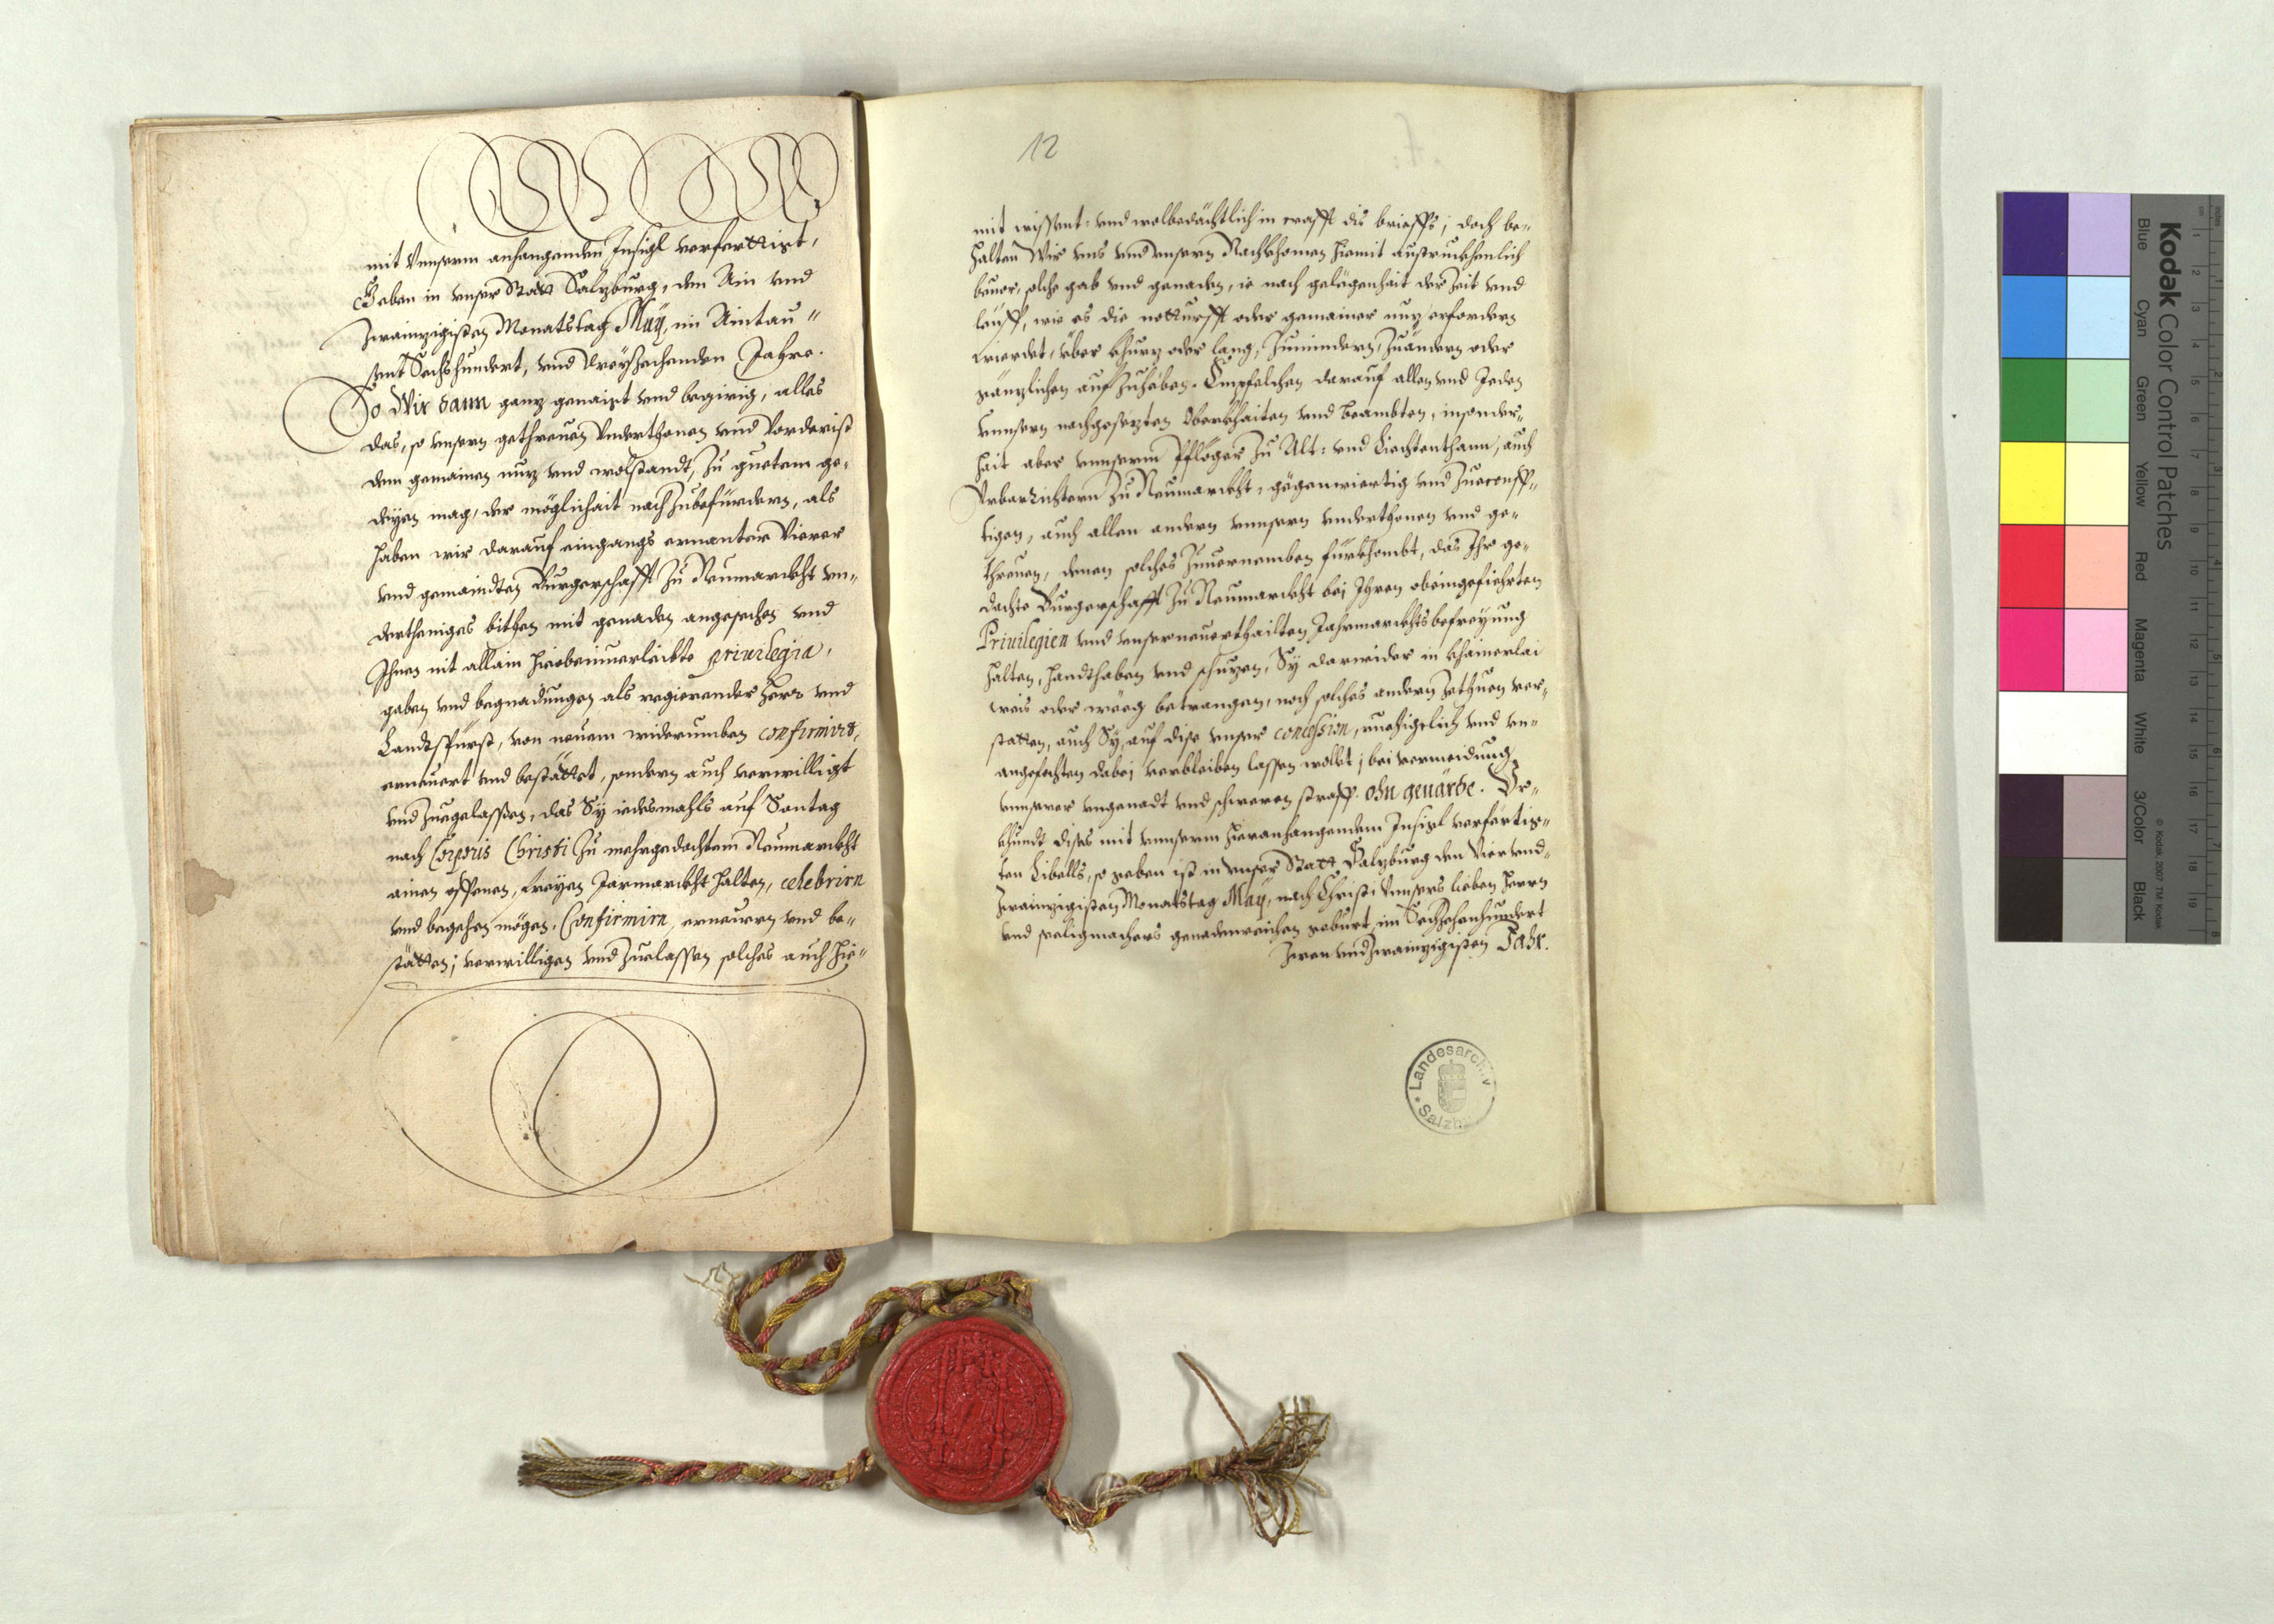 mit Vnnserm anhangenden Insigl verferttigt,
Geben in vnser Statt Salzburg, den Ain vnd
zwainzigisten Monatstag May, im Aintau"
sent Sechshundert, vnd dreyzechenden Jahre.
So Wir dann ganz genaigt vnd begirig, alles
das, so vnsern gethreuen Vnderthonen vnd Vorderist
dem gemainen nuz vnd wolstandt, zu guetem ge-
deyen mag, der möglichait nach zubefürdern, als
haben wir darauf eingangs ernanter Vierer
vnd gemaindten Burgerschafft zu Neumarckht vn-
dertheniges bitten mit genaden angesechen vnd
Ihnen nit allain hieobeinuerleibte priuilegia,
gaben vnd begnadungen als regierender Herr vnd
Landtsfürst, von neuem widerumben confirmirt,
erneuert vnd bestättet, sondern auch verwilligt
vnd zuegelassen, das Sy iedesmahls auf Sontag
nach Corporis Christi zu mehrgedachtem Neumarckht
ainen offenen, freyen Jarmarckht halten, celebrirn
vnd begehen mögen. Confirmirn, erneuern vnd be-
stätten; verwilligen vnd zuelassen solches auch hie-
12
mit wissent: vnd wolbedächtlich in crafft dis brieffs; doch be-
halten Wir vns vnd vnsern Nachkhomen hiemit austruckhenlich
beuor, solche gab vnd genaden, ie nach gelegenhait der Zeit vnd
leüff, wie es die notturfft oder gemainer nuz erfordern
wierdet, über khurz oder lang, zumindern, zuändern oder
gänzlichen aufzuheben. Empfelchen darauf allen vnd Jeden
vnnsern nachgesezten Oberkhaiten vnd beambten, insonder-
hait aber vnnserm Pfleger zu Alt: vnd Liechtenthann, auch
Vrbarrichtern zu Neumarckht, gegenwiertig vnd zuekonff-
tigen, auch allen andern vnnsern vnderthonen vnd ge-
threuen, denen solches zuuernemben fürkhombt, das Ihr ge-
dachte Burgerschafft zu Neumarckht bei Ihren obeingefiehrten
Priuilegien vnd vnser neuerthailten Jahrmarckhtsbefreyung
halten, handthaben vnd schuzen, Sy darwider in khainerlai
weis oder weeg betrangen, noch solches andern zethuen ver-
statten, auch Sy, auf dise vnser concession, ruehigelich vnd vn-
angefochten dabei verbleiben lassen wollet; bei vermeidung
vnnserer vngenadt vnd schweren straff. ohn geuärde. Vr-
khundt dises mit vnnserm hieranhangendem Insigl verfertig-
ten Libells, so geben ist in vnser Statt Salzburg den Vier vnd-
zwainzigisten Monatstag May, nach Christi Vnnsers lieben Herrn
vnd seeligmachers genadenreichen geburt, im Sechzehenhundert
zwen vnd zwainzigisten Jahr.
Landesarchiv
Salzb
Kodak Color Control Patches
Blue Cyan Green Yellow Red Magenta White 3/Color Black
© Kodak, 2007 TM: Kodak